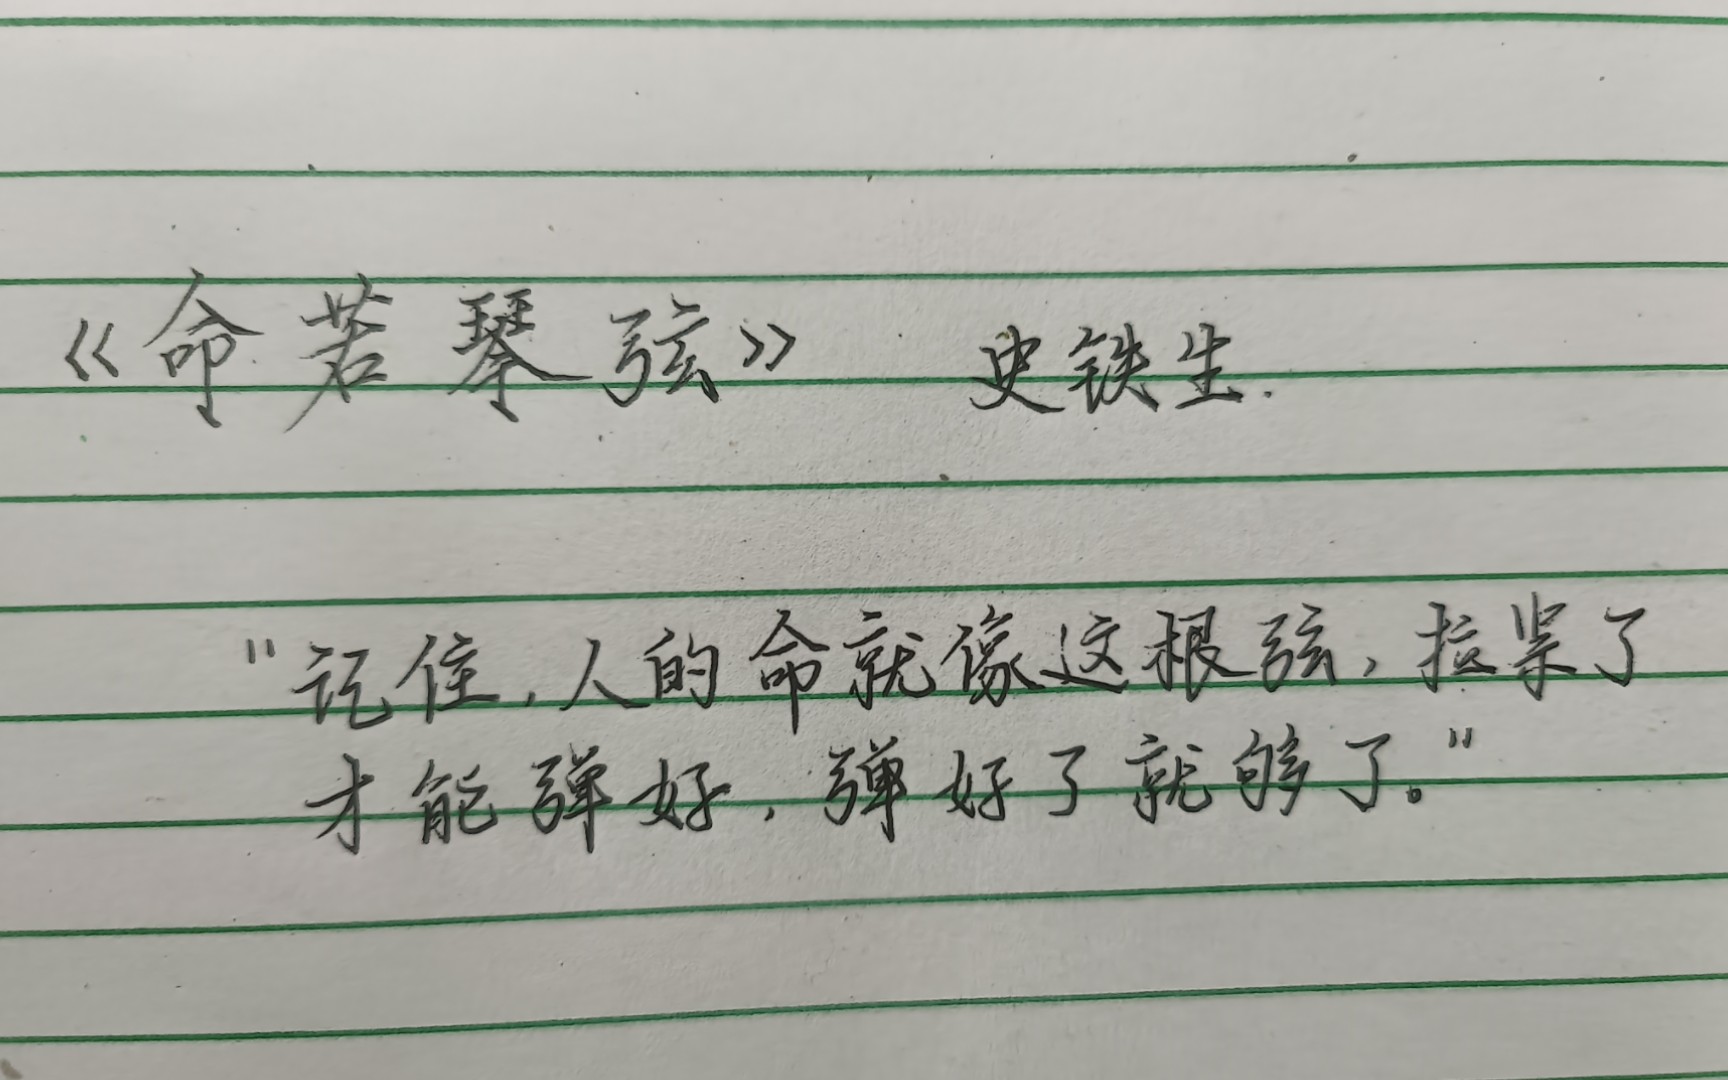 《命若琴弦》 史铁生.
"记住,人的命就像这根弦,拉紧了
才能弹好,弹好了就够了。"